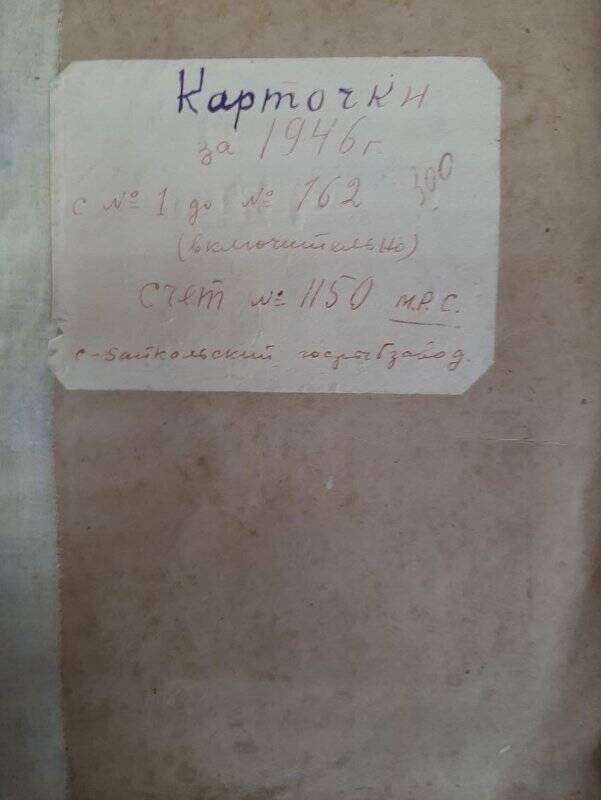 Карточки
за 1946 г.
с № 1 до № 162 300
(включительно)
Счет № 1150 М.Р.С.
с-Байкальский госрыбзавод.